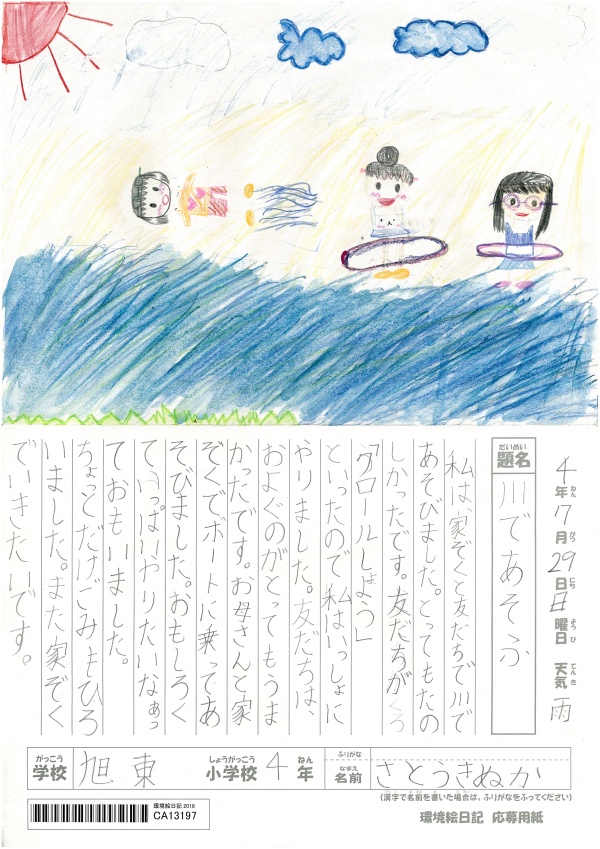 4年 7月 29日 日曜日 天気 雨
ねん がつ にち ようび てんき
だいめい
題名 川であそぶ
私は、家ぞくと友だちで川で
あそびました。とってもたの
しかったです。友だちがくろ
「クロールしよう」
といったので私はいっしょに
やりました。友だちは、
およぐのがとってもうま
かったです。お母さんと家
ぞくでボートに乗ってあ
そびました。おもしろく
て、いっぱいやりたいなぁっ
ておもいました。
ちょとだけごみもひろ
いました。また家ぞく
でいきたいです。
がっこう しょうがっこう ねん ふりがな
学校 旭東 小学校 4年 なまえ 名前 さとうきぬか
(漢字で名前を書いた場合は、ふりがなをふってください)
環境絵日記 2018
CA13197
環境絵日記 応募用紙